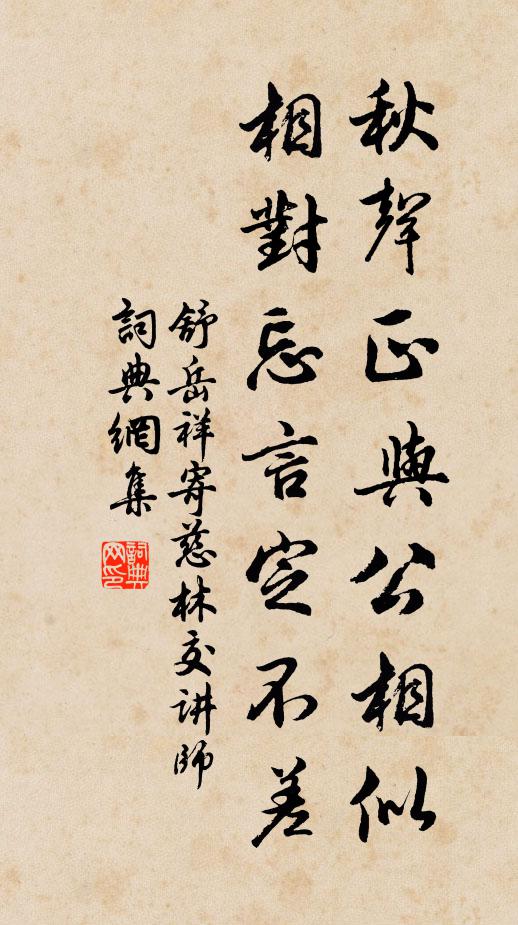 秋聲正與公相似
相對忘言定不差
舒岳祥寄慈林交讲師
詞典網集
詞典网印